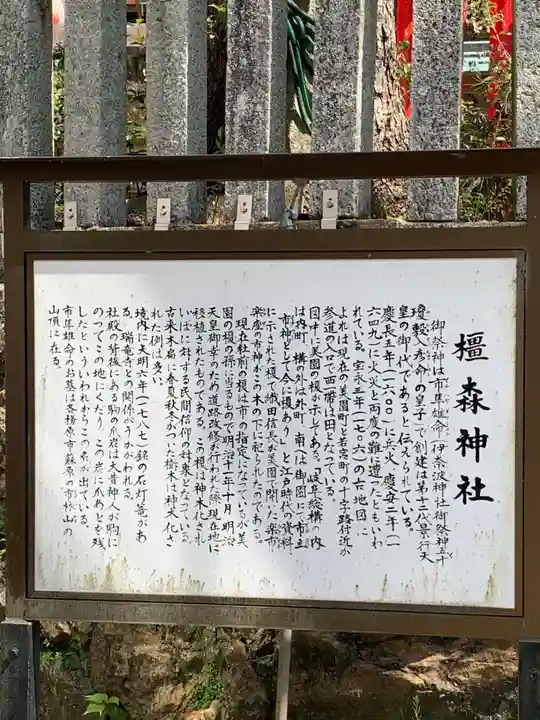 橿森神社
御祭神は市隼雄命 伊奈波神社御祭神五十
瓊敷入彦命の皇子で 創建は第十二代景行天
皇の御代であると伝えられている。
慶長五年(一六〇〇)に兵火 慶安二年(一
六四九)に火災と両度の難に遭ったともいわ
れている。宝永五年(一七〇八)の古地図に
よれば現在の美園町と若宮町の十字路付近が
参道の入口で西一帯は田となっている。
図中に美園の榎が示してある。「岐阜総構の内
は内町 構の外は外町 南へは御園にて市立
市神として今に榎あり」と江戸時代の資料
に示された榎で織田信長が美園で開いた楽市
楽座の市神がこの木の下に祀られたのである。
現在社前の榎は市の指定になっているが美
園の榎の孫に当るもので明治十一年十月 明治
天皇御幸のため道路改修が行われた際現在地に
移植されたものである。この榎は神木とされ
いぼに対する民間信仰の対象となっている。
古来木扁に春夏秋冬がつけた樹木は神木化さ
れた例は多い。
境内に天明六年(一七八七)銘の石灯篭があ
る 瑞竜寺との関係がうかがわれる。
社殿の背後にある駒の爪岩は大昔神人が駒に
のってこの地にくだり この岩に爪あとを残
したといういわれからこの名が出ている。
市隼雄命のお墓は各務原市蘇原の市林山の
山頂に在る